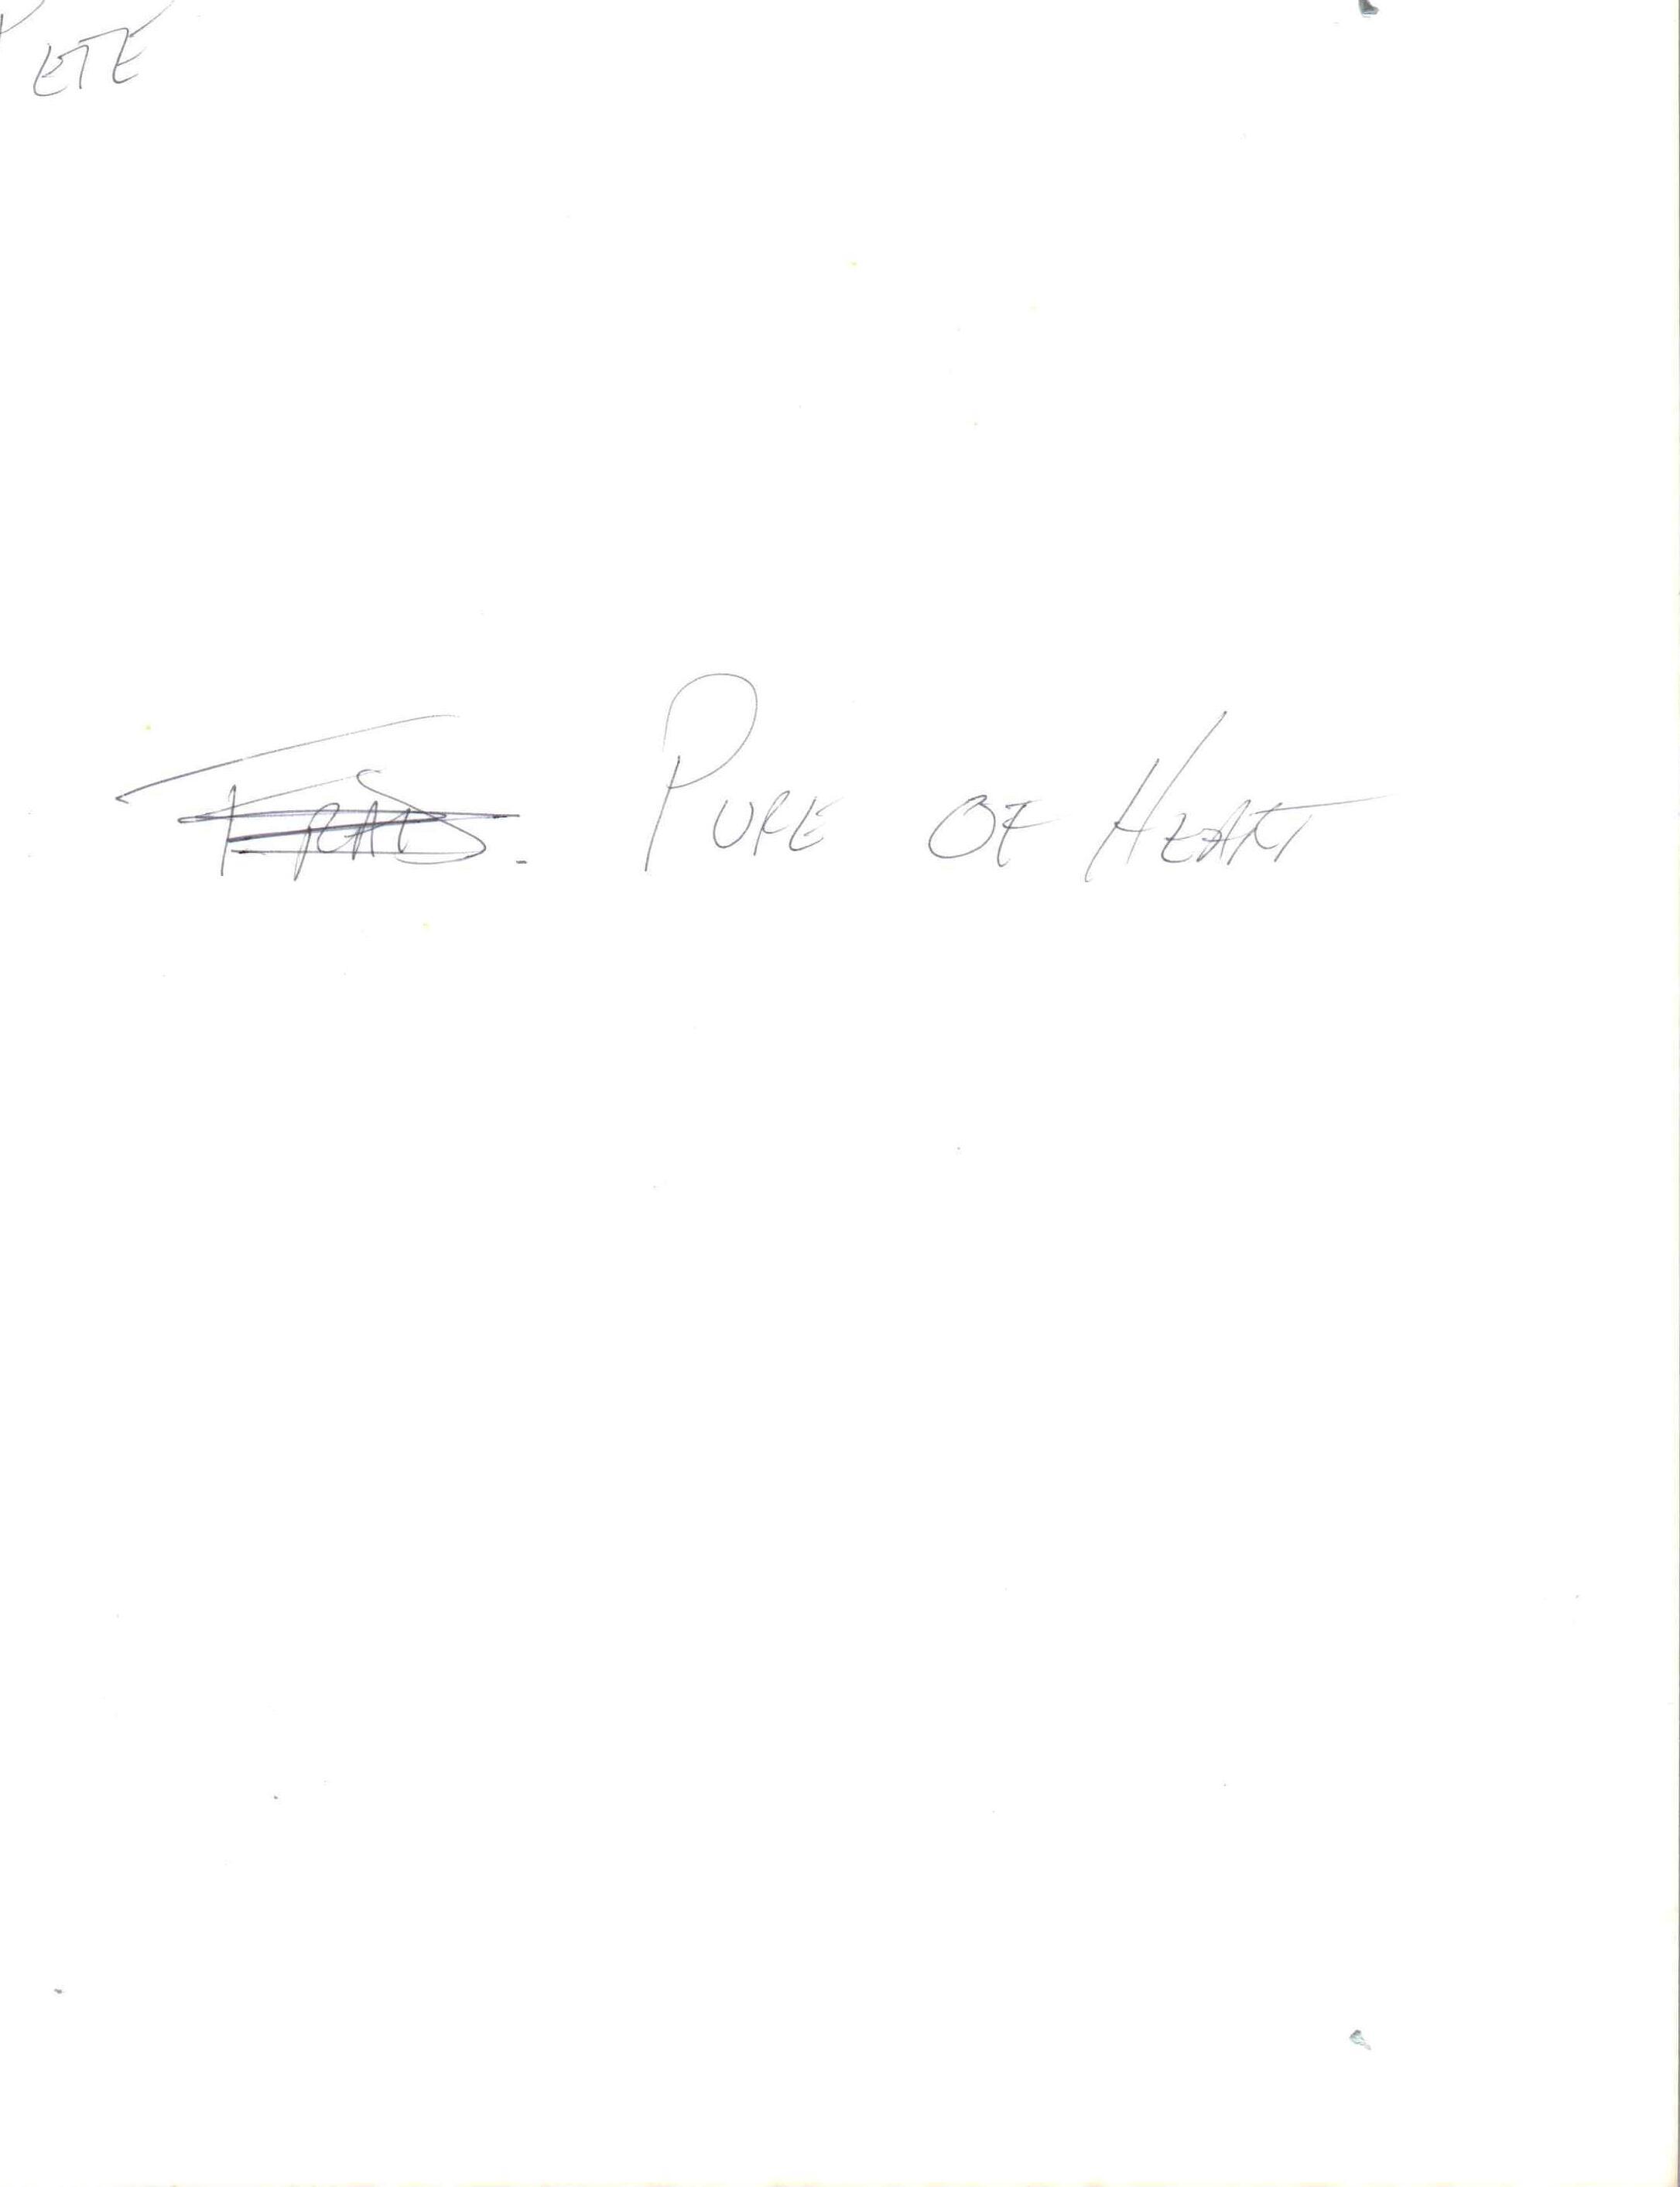 PETE
PURE OF HEART